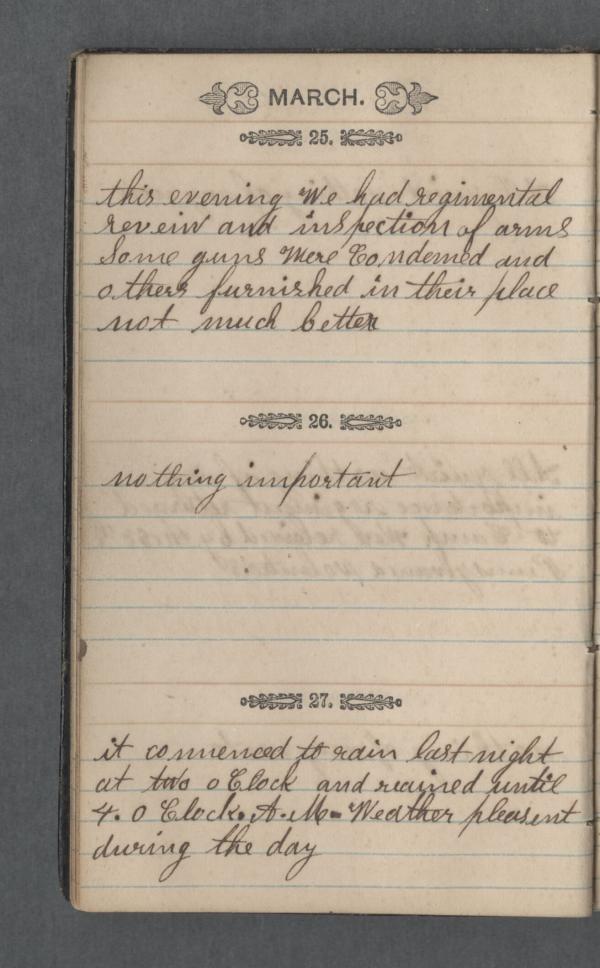 MARCH.
25.
this evening We had regimental
reveiw and inspection of arms
Some guns Were Condemed and
others furnished in their place
not much better
26.
nothing important
27.
it commenced to rain last night
at two o Clock and reained until
4. O Clock. A. M= Weather pleasent
during the day